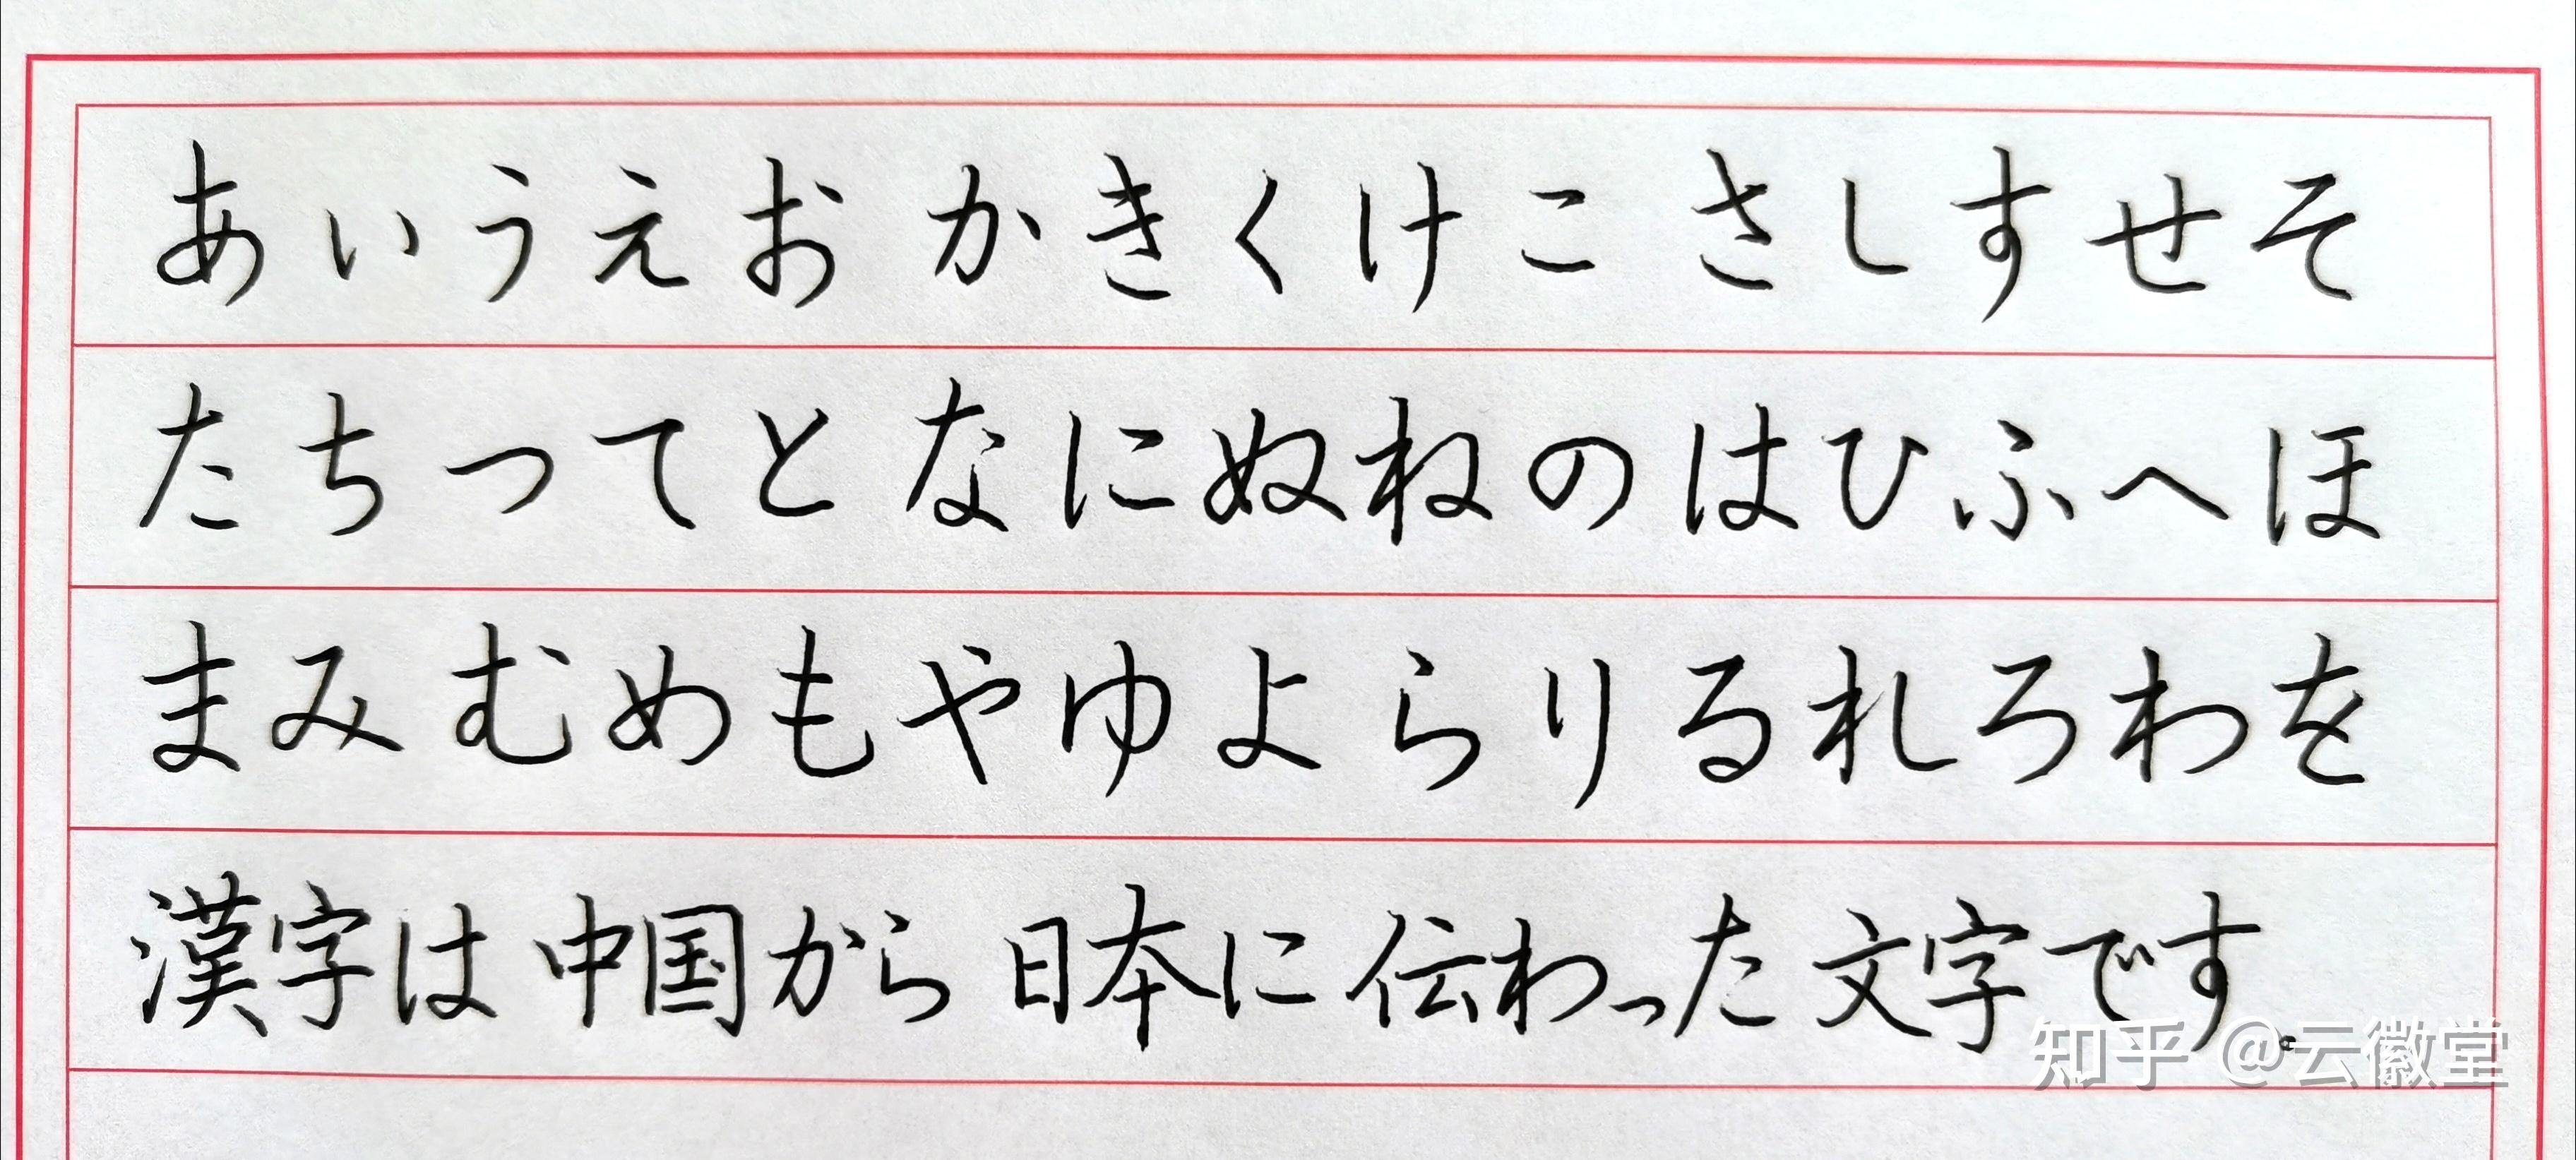 あいうえお かきくけこ さしすせそ
たちつてと なにぬねの はひふへほ
まみむめもやゆよらりるれろわを
漢字は中国から日本に伝わった文字です。
知乎 @云徽堂